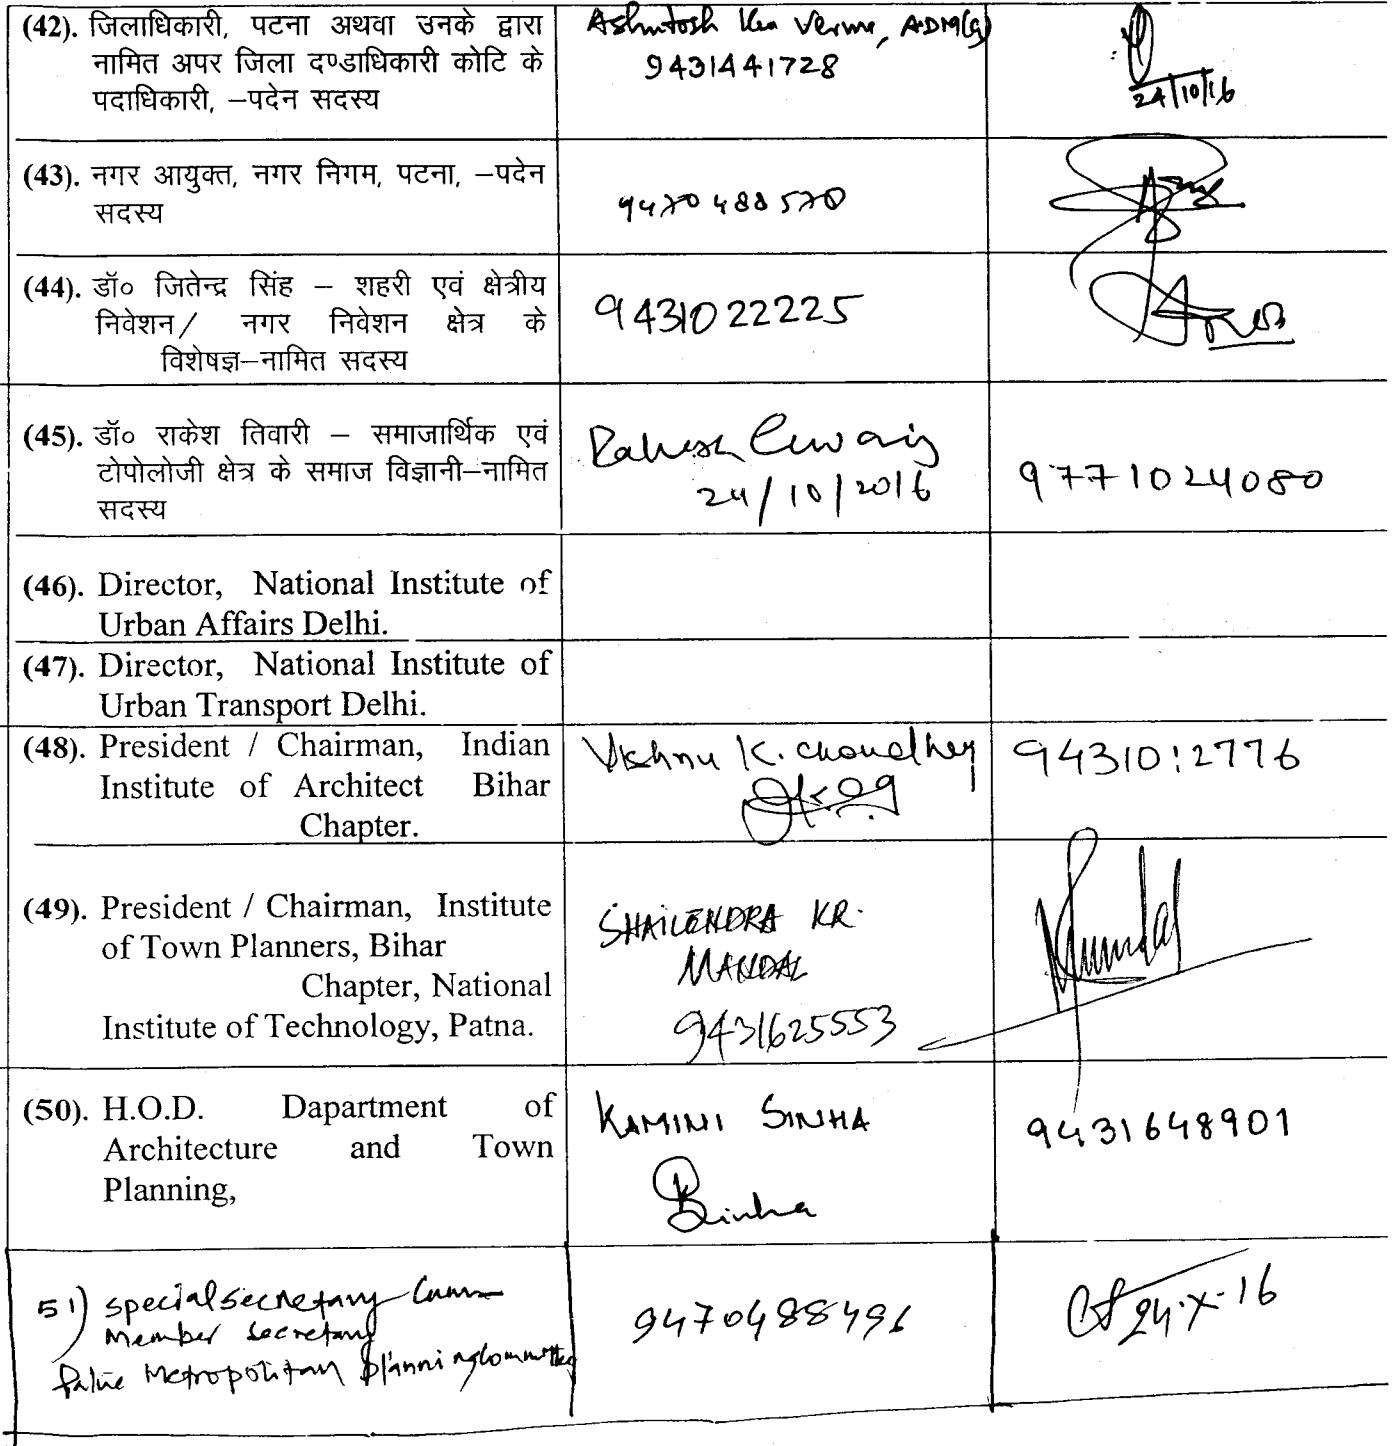 (42). जिलाधिकारी, पटना अथवा उनके द्वारा
नामित अपर जिला दण्डाधिकारी कोटि के
पदाधिकारी, –पदेन सदस्य
Ashutosh Kr Verma, ADM(G)
9431441728
24/10/16
(43). नगर आयुक्त, नगर निगम, पटना, –पदेन
सदस्य
9470488570
(44). डॉ० जितेन्द्र सिंह – शहरी एवं क्षेत्रीय
निवेशन/ नगर निवेशन क्षेत्र के
विशेषज्ञ–नामित सदस्य
9431022225
(45). डॉ० राकेश तिवारी – समाजार्थिक एवं
टोपोलोजी क्षेत्र के समाज विज्ञानी–नामित
सदस्य
Rakesh Tiwary
24/10/2016
9771024080
(46). Director, National Institute of
Urban Affairs Delhi.
(47). Director, National Institute of
Urban Transport Delhi.
(48). President / Chairman, Indian
Institute of Architect Bihar
Chapter.
Vishnu K. Choudhary
9431012776
(49). President / Chairman, Institute
of Town Planners, Bihar
Chapter, National
Institute of Technology, Patna.
SHAILENDRA KR.
MANDAL
9431625553
(50). H.O.D. Dapartment of
Architecture and Town
Planning,
KAMINI SINHA
KSinha
9431648901
51) special secretary Cum
Member Secretary
Patna Metropolitan Planning Committee
9470488496
24.X.16